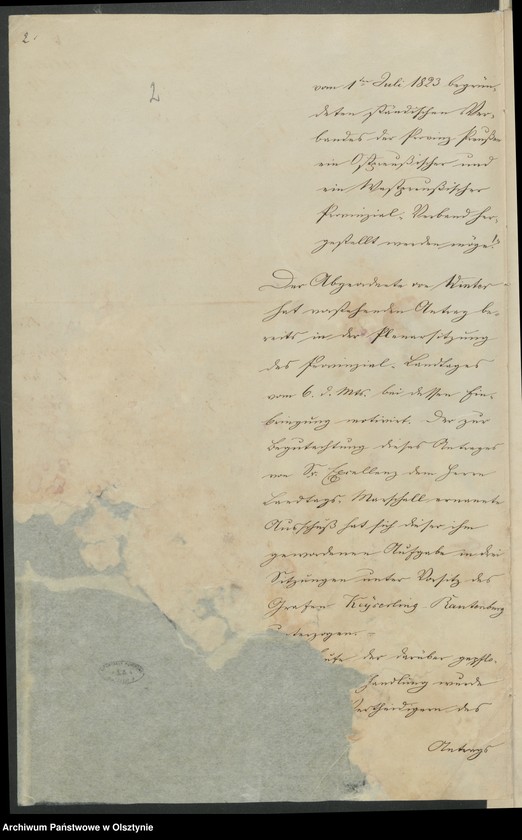 2.
2
vom 1ten Juli 1823 begrün-
deten ständischen Ver-
bandes der Provinz Preußen
ein Ostpreußischer und
ein Westpreußischer
Provinzial-Verband her-
gestellt werden möge!"
Der Abgeordnete von Winter
hat vorstehenden Antrag be-
reits in der Plenarsitzung
des Provinzial-Landtages
vom 6. d. Mts. bei dessen Ein-
bringung motivirt. Der zur
Begutachtung dieses Antrages
von Sr. Excellenz dem Herrn
Landtags-Marschall ernannte
Ausschuß hat sich dieser ihm
gewordenen Aufgabe in drei
Sitzungen unter Vorsitz des
Grafen Keyserling-Rautenburg
unterzogen.
der darüber gepflo-
handlung wurde
ertheidigern des
Antrags
Archiwum Państwowe w Olsztynie